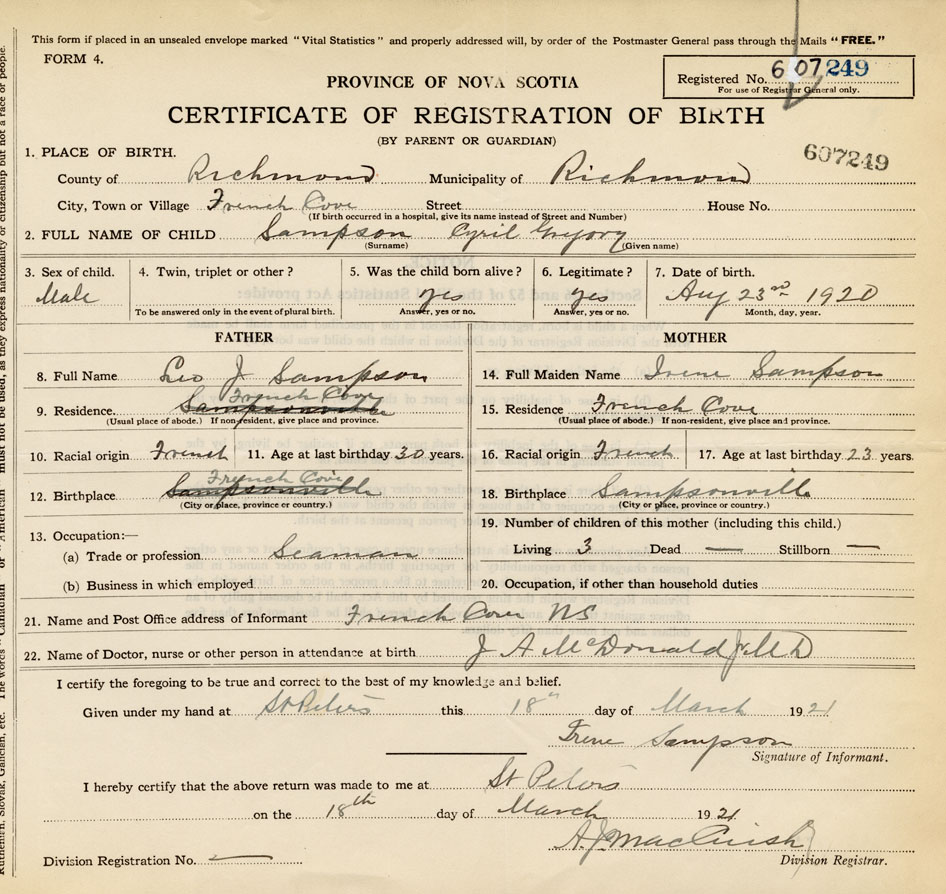 This form if placed in an unsealed envelope marked "Vital Statistics" and properly addressed will, by order of the Postmaster General pass through the Mails "FREE."
FORM 4.
Registered No. 607249
For use of Registrar General only.
PROVINCE OF NOVA SCOTIA
CERTIFICATE OF REGISTRATION OF BIRTH
(BY PARENT OR GUARDIAN)
607249
1. PLACE OF BIRTH.
County of Richmond Municipality of Richmond
City, Town or Village French Cove Street House No.
(If birth occurred in a hospital, give its name instead of Street and Number)
2. FULL NAME OF CHILD Sampson Cyril Gregory
(Surname) (Given name)
3. Sex of child. 4. Twin, triplet or other? 5. Was the child born alive? 6. Legitimate? 7. Date of birth.
Male yes yes Aug 23rd 1920
To be answered only in the event of plural birth. Answer, yes or no. Answer, yes or no. Month, day, year.
FATHER MOTHER
8. Full Name Leo J Sampson 14. Full Maiden Name Irene Sampson
French Cove
9. Residence. Sampsonville 15. Residence French Cove
(Usual place of abode.) If non-resident, give place and province. (Usual place of abode.) If non-resident, give place and province.
10. Racial origin French 11. Age at last birthday 30 years. 16. Racial origin French 17. Age at last birthday 23 years.
French Cove
12. Birthplace Sampsonville 18. Birthplace Sampsonville
(City or place, province or country.) (City or place, province or country.)
13. Occupation:— 19. Number of children of this mother (including this child.)
(a) Trade or profession Seaman Living 3 Dead — Stillborn —
(b) Business in which employed 20. Occupation, if other than household duties
21. Name and Post Office address of Informant French Cove NS
22. Name of Doctor, nurse or other person in attendance at birth J A McDonald Jr MD
I certify the foregoing to be true and correct to the best of my knowledge and belief.
Given under my hand at St Peters this 18th day of March 1921
Irene Sampson
Signature of Informant.
I hereby certify that the above return was made to me at St Peters
on the 18th day of March 1921
A. J. MacCuish
Division Registration No. — Division Registrar.